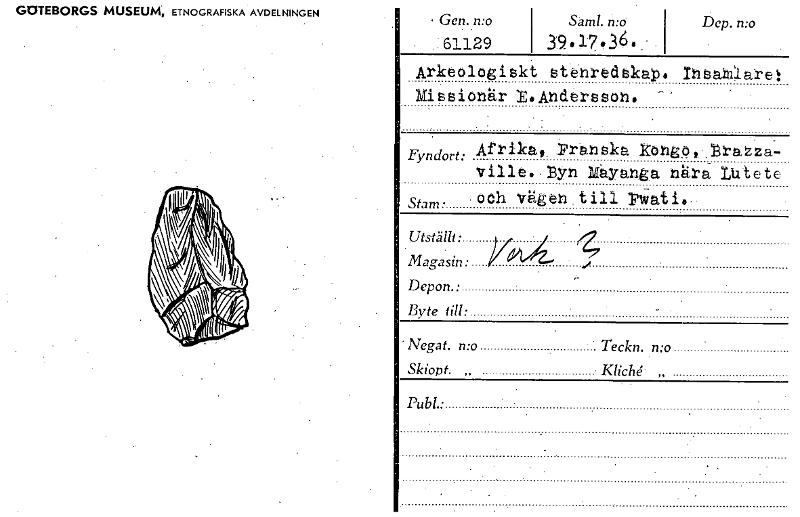 GÖTEBORGS MUSEUM, ETNOGRAFISKA AVDELNINGEN
Gen. n:o Saml. n:o Dep. n:o
61129 39.17.36.
Arkeologiskt stenredskap. Insamlare:
Missionär E. Andersson.
Fyndort: Afrika, Franska Kongo, Brazza-
ville. Byn Mayanga nära Lutete
Stam: och vägen till Fwati.
Utställt:
Magasin: Verk 3
Depon.:
Byte till:
Negat. n:o Teckn. n:o
Skiopt. „ Kliché „
Publ.: